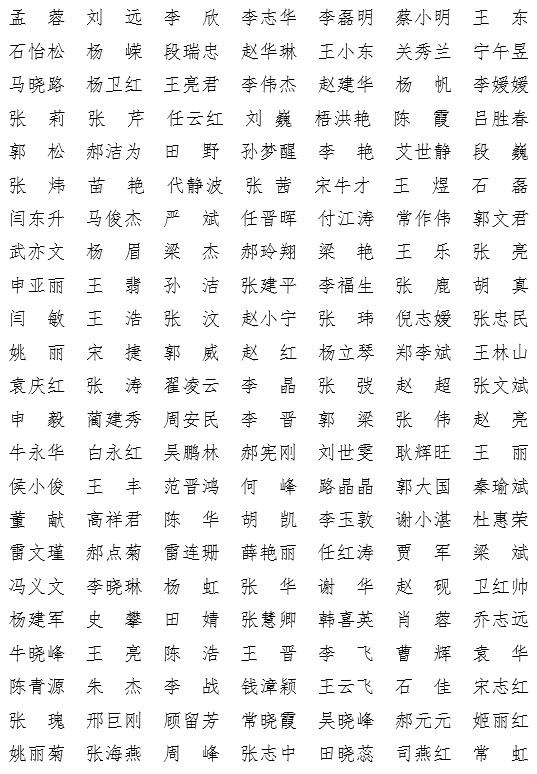 孟　蓉　刘　远　李　欣　李志华　李磊明　蔡小明　王　东
石怡松　杨　嵘　段瑞忠　赵华琳　王小东　关秀兰　宁午昱
马晓路　杨卫红　王亮君　李伟杰　赵建华　杨　帆　李媛媛
张　莉　张　芹　任云红　刘　巍　梧洪艳　陈　霞　吕胜春
郭　松　郝洁为　田　野　孙梦醒　李　艳　艾世静　段　巍
张　炜　苗　艳　代静波　张　茜　宋牛才　王　煜　石　磊
闫东升　马俊杰　严　斌　任晋晖　付江涛　常作伟　郭文君
武亦文　杨　眉　梁　杰　郝玲翔　梁　艳　王　乐　张　亮
申亚丽　王　翡　孙　洁　张建平　李福生　张　鹿　胡　真
闫　敏　王　浩　张　汶　赵小宁　张　玮　倪志嫒　张忠民
姚　丽　宋　捷　郭　威　赵　红　杨立琴　郑李斌　王林山
袁庆红　张　涛　翟凌云　李　晶　张　弢　赵　超　张文斌
申　毅　蔺建秀　周安民　李　晋　郭　梁　张　伟　赵　亮
牛永华　白永红　吴鹏林　郝宪刚　刘世雯　耿辉旺　王　丽
侯小俊　王　丰　范晋鸿　何　峰　路晶晶　郭大国　秦瑜斌
董　献　高祥君　陈　华　胡　凯　李玉敦　谢小湛　杜惠荣
雷文瑾　郝点菊　雷连珊　薛艳丽　任红涛　贾　军　梁　斌
冯义文　李晓琳　杨　虹　张　华　谢　华　赵　砚　卫红帅
杨建军　史　攀　田　婧　张慧卿　韩喜英　肖　蓉　乔志远
牛晓峰　王　亮　陈　浩　王　晋　李　飞　曹　辉　袁　华
陈青源　朱　杰　李　战　钱漳颖　王云飞　石　佳　宋志红
张　瑰　邢巨刚　顾留芳　常晓霞　吴晓峰　郝元元　姬丽红
姚丽菊　张海燕　周　峰　张志中　田晓蕊　司燕红　常　虹